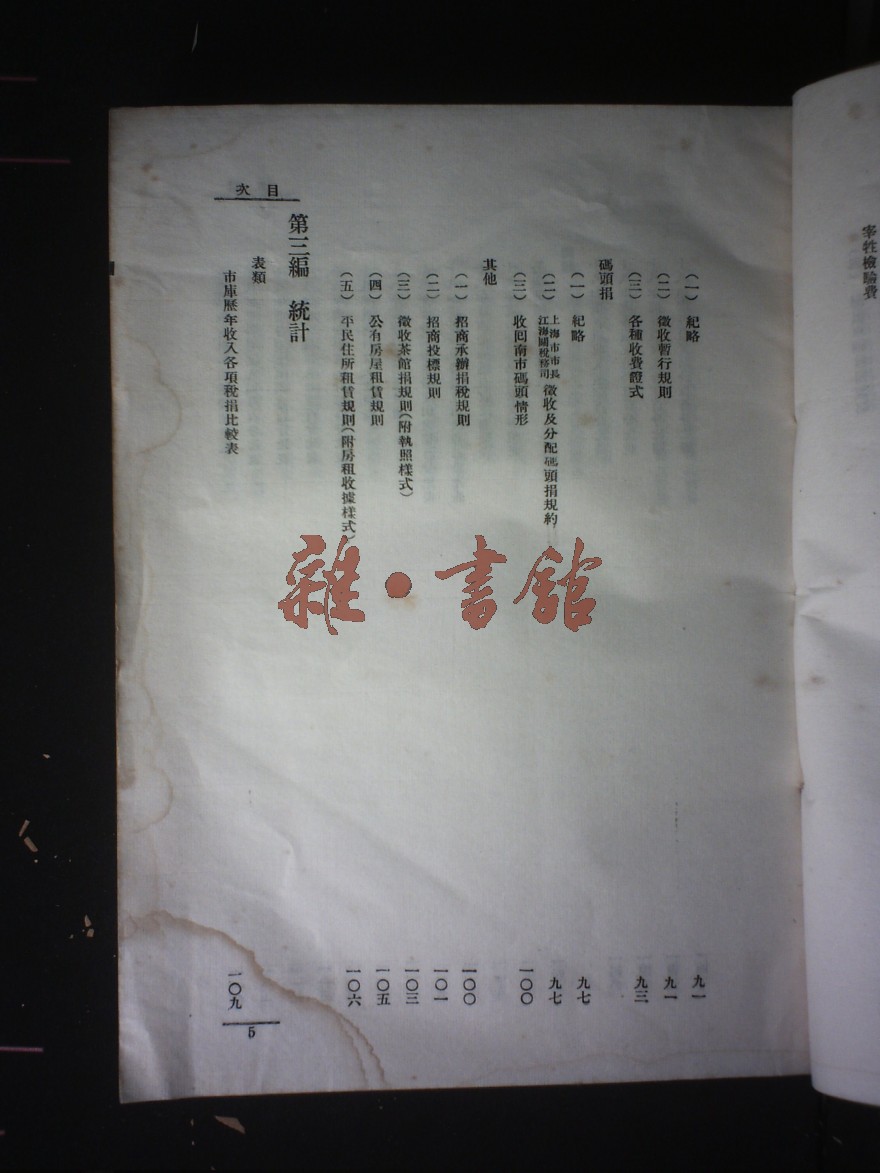 宰牲檢驗費
目次
（一）紀略 九一
（二）徵收暫行規則 九一
（三）各種收費證式 九三
碼頭捐
（一）紀略 九七
（二）上海市市長江海關稅務司徵收及分配碼頭捐規約 九七
（三）收回南市碼頭情形 一〇〇
其他
（一）招商承辦捐稅規則 一〇〇
（二）招商投標規則 一〇一
（三）徵收茶館捐規則（附執照樣式） 一〇三
（四）公有房屋租賃規則 一〇五
（五）平民住所租賃規則（附房租收據樣式） 一〇六
第三編 統計
表類
市庫歷年收入各項稅捐比較表 一〇九
5
雜・書館